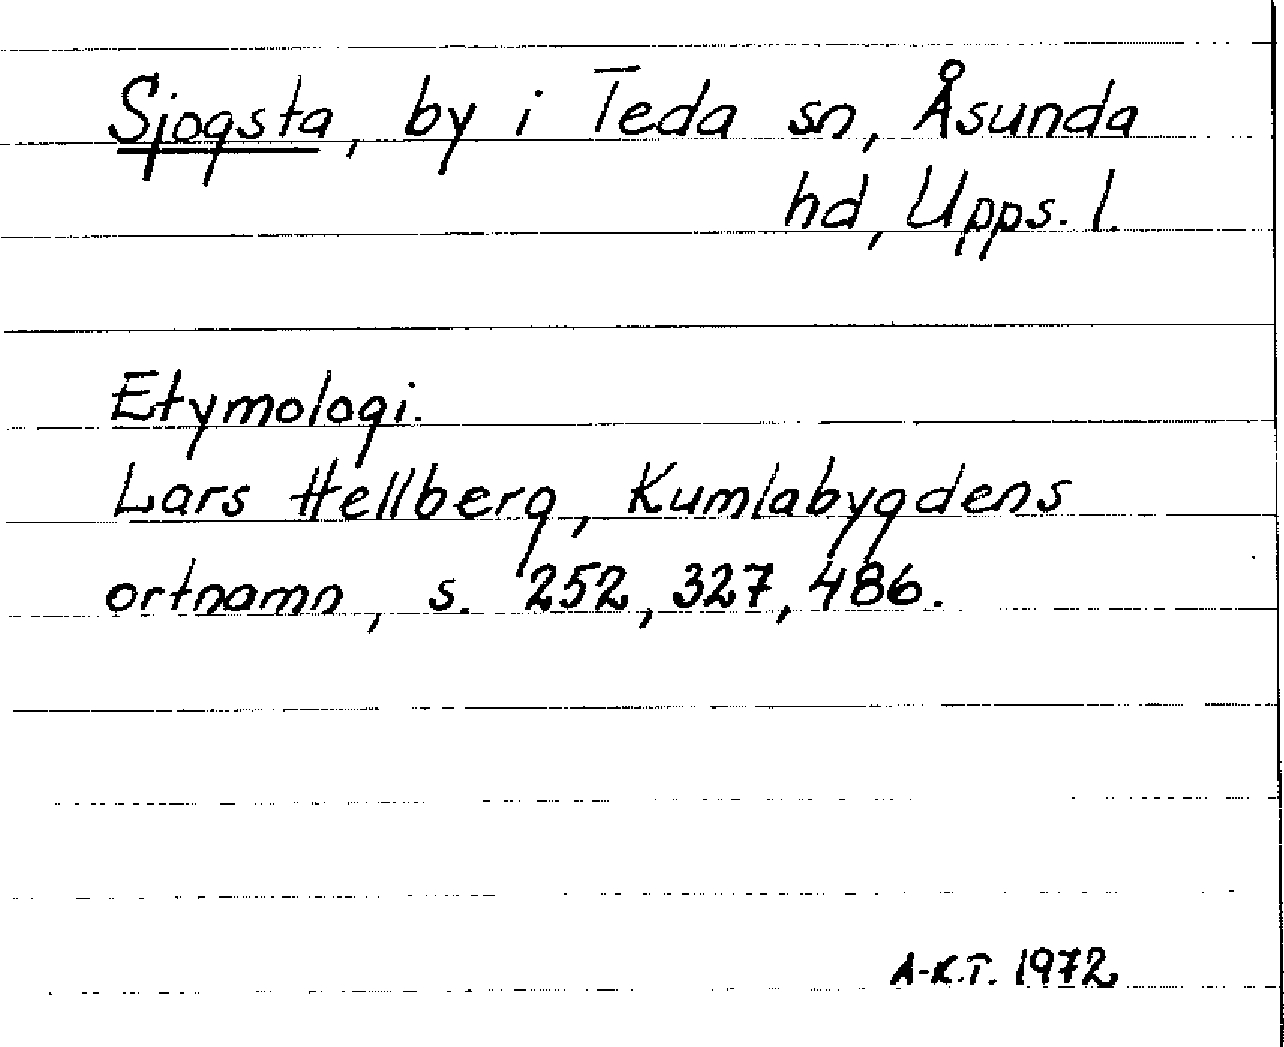 Sjogsta, by i Teda sn, Åsunda
hd, Upps. l.
Etymologi.
Lars Hellberg, Kumlabygdens
ortnamn, s. 252, 327, 486.
A-K.T. 1972